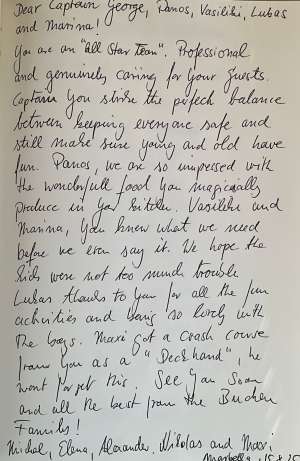 Dear Captain George, Panos, Vasiliki, Lukas
and Marina!
You are an "all Star Team". Professional
and genuinely caring for your guests.
Captain you strike the perfect balance
between keeping everyone safe and
still make sure young and old have
fun. Panos, we are so impressed with
the wonderfull food you magically
produce in you kitchen. Vasiliki and
Marina, you know what we need
before we even say it. We hope the
kids were not too much trouble
Lukas thanks to you for all the fun
activities and being so lovely with
the boys. Maxi got a crash course
from you as a "Deckhand", he
wont forget this. See you soon
and all the best from the
Family!
Michal, Elena, Alexander, Nikolas and Maxi